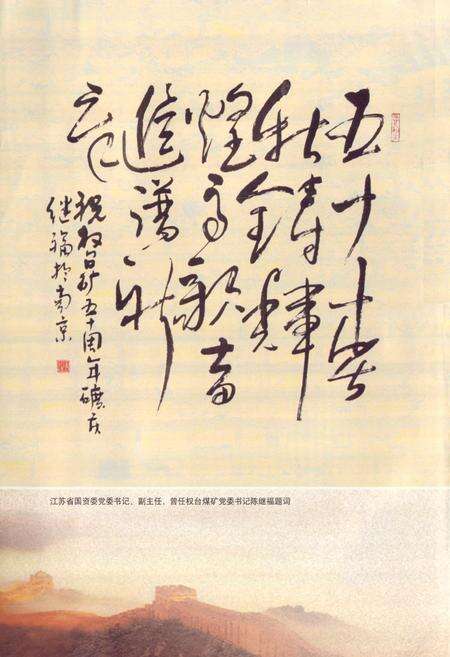 五十春
秋铸辉
煌高歌奋
進谱新
章
祝权台矿五十周年礦庆
继福於南京
江苏省国资委党委书记、副主任、曾任权台煤矿党委书记陈继福题词